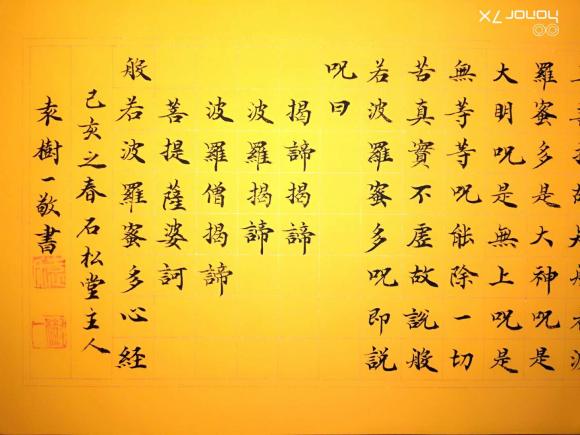 羅蜜多是大神呪是
大明呪是無上呪是
無等等呪能除一切
苦真實不虛故說般
若波羅蜜多呪即說
呪曰
揭諦揭諦
波羅揭諦
波羅僧揭諦
菩提薩婆訶
般若波羅蜜多心経
己亥之春石松堂主人
袁樹一敬書
honor 7X